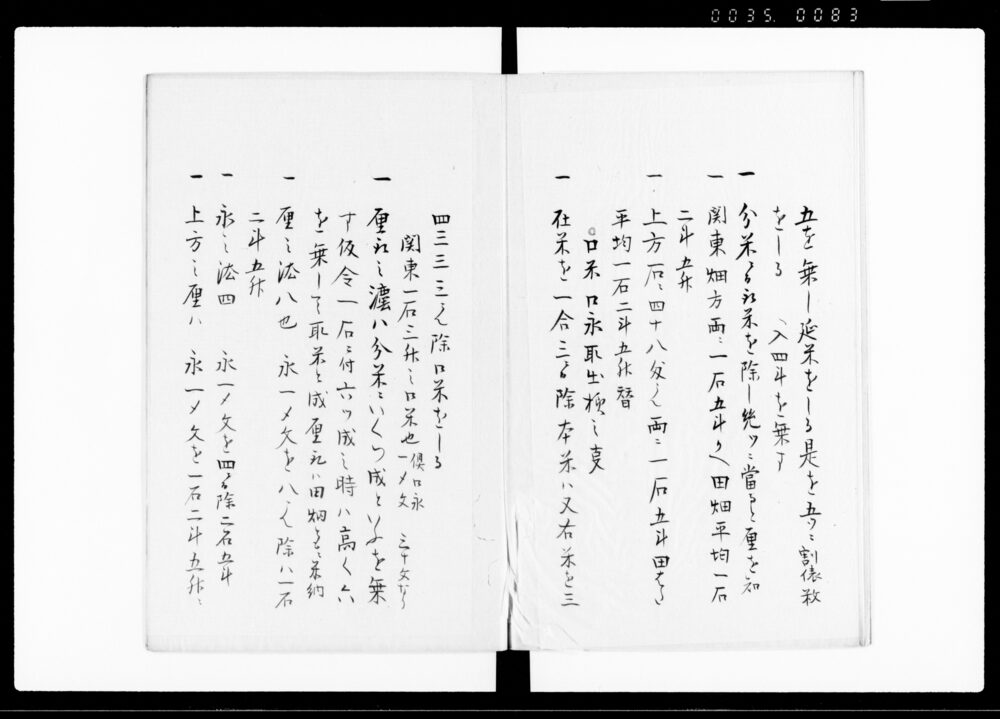 0035. 0083
五を乗し延米をしる是を五ツニ割俵数
をしる 入四斗を乗す
一 分米る取米を除し幾ツニ當ると厘を知
一 関東畑方両ニ一石五斗かへ田畑平均一石
二斗五升
一 上方一石ニ四十八匁 両ニ一石五斗田
平均一石二斗五升替
口米口永取出様之事
一 在米を一合三る除本米ハ又右米を三
四三三三ニ而除口米をしる
関東一石三升之口米也 倶口永一〆文 三十文なり
一 厘取之法ハ分米ニいくつ成といふを乗
す仮令一石ニ付六ツ成之時ハ高く六
を乗して取米と成厘取ハ田畑ともニ米納
一 厘之法八也 永一〆文を八ニ而除ハ一石
二斗五升
一 永之法四 永一〆文を四る除二石五斗
一 上方之厘ハ 永一〆文を一石二斗五升ニ